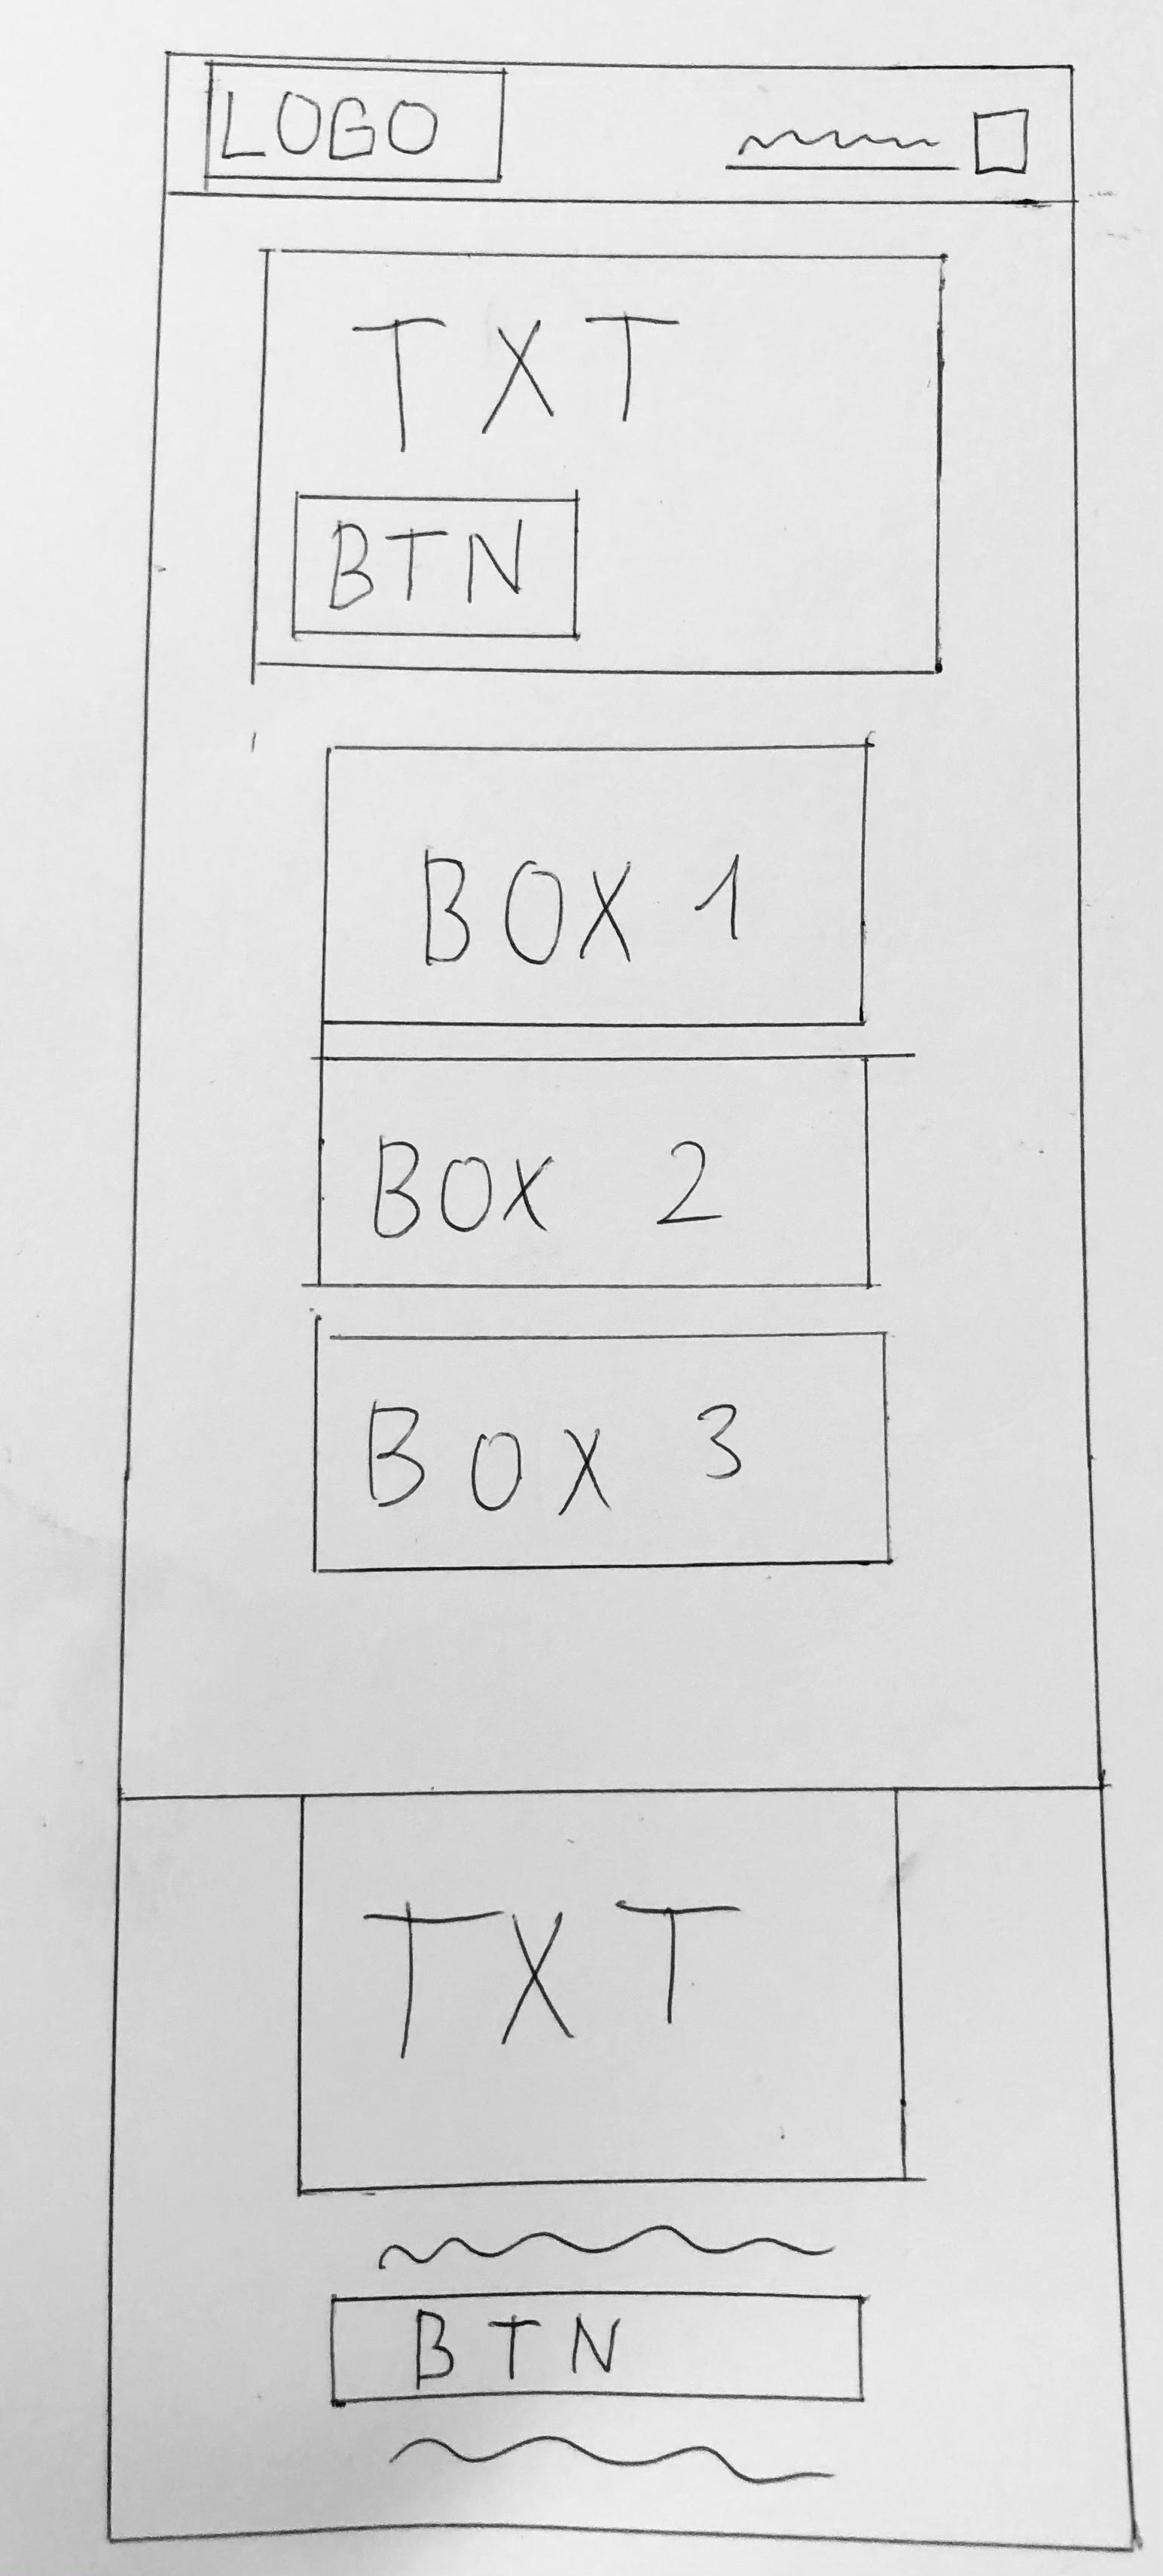 LOGO
TXT
BTN
BOX 1
BOX 2
BOX 3
TXT
BTN